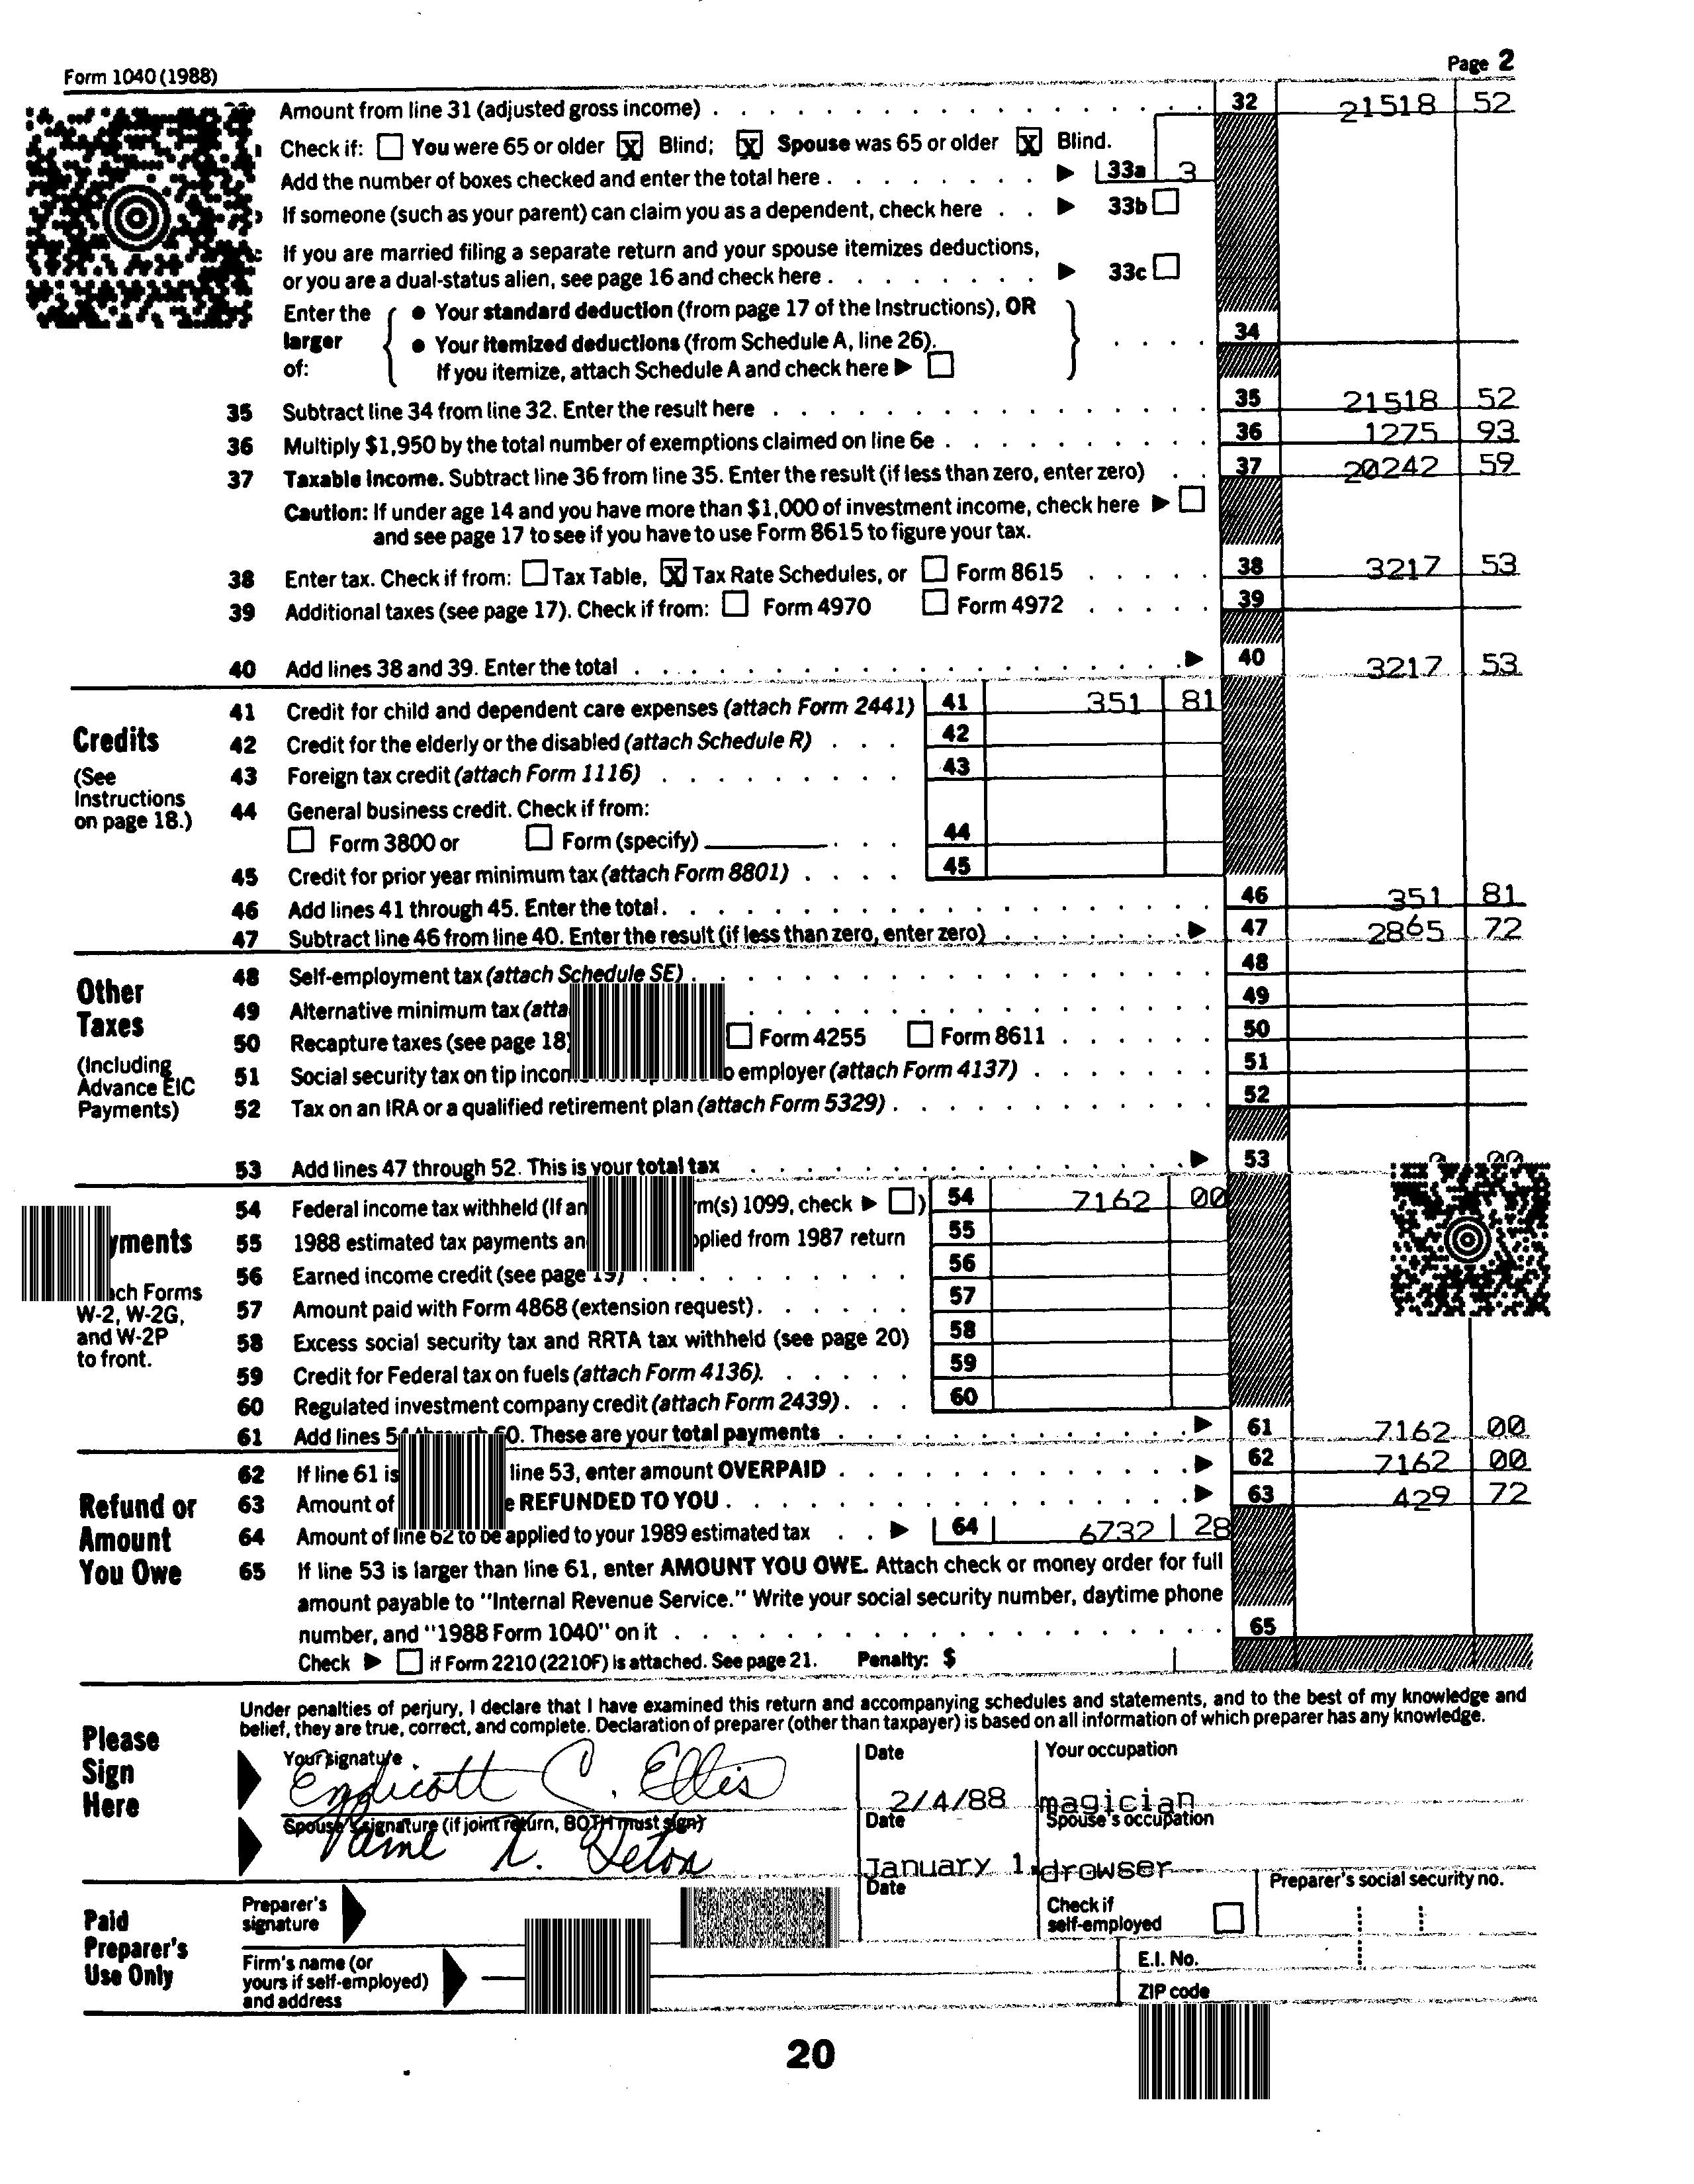 Form 1040 (1988)
Page 2
Amount from line 31 (adjusted gross income) 32 21518 52
Check if: You were 65 or older X Blind; X Spouse was 65 or older X Blind.
Add the number of boxes checked and enter the total here 33a 3
If someone (such as your parent) can claim you as a dependent, check here 33b
If you are married filing a separate return and your spouse itemizes deductions,
or you are a dual-status alien, see page 16 and check here 33c
Enter the larger of:
• Your standard deduction (from page 17 of the Instructions), OR
• Your itemized deductions (from Schedule A, line 26).
If you itemize, attach Schedule A and check here
34
35 Subtract line 34 from line 32. Enter the result here 35 21518 52
36 Multiply $1,950 by the total number of exemptions claimed on line 6e 36 1275 93
37 Taxable income. Subtract line 36 from line 35. Enter the result (if less than zero, enter zero) 37 20242 59
Caution: If under age 14 and you have more than $1,000 of investment income, check here
and see page 17 to see if you have to use Form 8615 to figure your tax.
38 Enter tax. Check if from: Tax Table, X Tax Rate Schedules, or Form 8615 38 3217 53
39 Additional taxes (see page 17). Check if from: Form 4970 Form 4972 39
40 Add lines 38 and 39. Enter the total 40 3217 53
Credits
(See
Instructions
on page 18.)
41 Credit for child and dependent care expenses (attach Form 2441) 41 351 81
42 Credit for the elderly or the disabled (attach Schedule R) 42
43 Foreign tax credit (attach Form 1116) 43
44 General business credit. Check if from:
Form 3800 or Form (specify) 44
45 Credit for prior year minimum tax (attach Form 8801) 45
46 Add lines 41 through 45. Enter the total 46 351 81
47 Subtract line 46 from line 40. Enter the result (if less than zero, enter zero) 47 2865 72
Other
Taxes
(Including
Advance EIC
Payments)
48 Self-employment tax (attach Schedule SE) 48
49 Alternative minimum tax 49
50 Recapture taxes (see page 18) Form 4255 Form 8611 50
51 Social security tax on tip employer (attach Form 4137) 51
52 Tax on an IRA or a qualified retirement plan (attach Form 5329) 52
53 Add lines 47 through 52. This is your total tax 53
ch Forms
W-2, W-2G,
and W-2P
to front.
54 Federal income tax withheld (If 1099, check ) 54 7162 00
55 1988 estimated tax payments from 1987 return 55
56 Earned income credit (see page 19) 56
57 Amount paid with Form 4868 (extension request) 57
58 Excess social security tax and RRTA tax withheld (see page 20) 58
59 Credit for Federal tax on fuels (attach Form 4136) 59
60 Regulated investment company credit (attach Form 2439) 60
61 Add lines 60. These are your total payments 61 7162 00
Refund or
Amount
You Owe
62 If line 61 is line 53, enter amount OVERPAID 62 7162 00
63 Amount of REFUNDED TO YOU 63 429 72
64 Amount of line 62 to be applied to your 1989 estimated tax 64 6732 28
65 If line 53 is larger than line 61, enter AMOUNT YOU OWE. Attach check or money order for full
amount payable to "Internal Revenue Service." Write your social security number, daytime phone
number, and "1988 Form 1040" on it 65
Check if Form 2210 (2210F) is attached. See page 21. Penalty: $
Please
Sign
Here
Under penalties of perjury, I declare that I have examined this return and accompanying schedules and statements, and to the best of my knowledge and
belief, they are true, correct, and complete. Declaration of preparer (other than taxpayer) is based on all information of which preparer has any knowledge.
Your signature Date Your occupation
Endicott C. Ellis 2/4/88 magician
Spouse's signature (if joint return, BOTH must sign) Date Spouse's occupation
January 1, drowser
Paid
Preparer's
Use Only
Preparer's
signature
Date
Check if
self-employed
Preparer's social security no.
Firm's name (or
yours if self-employed)
and address
E.I. No.
ZIP code
20